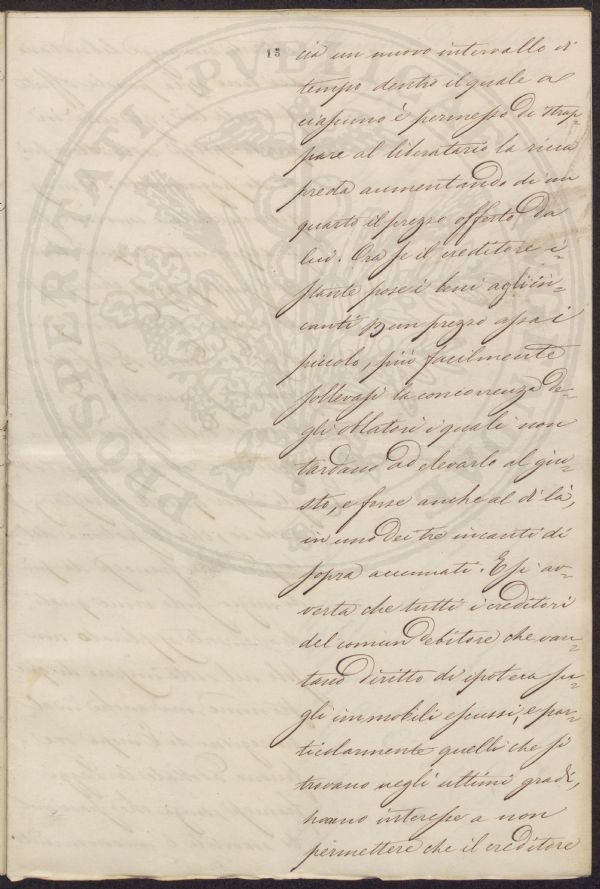 15
cia un nuovo intervallo di
tempo dentro il quale a
ciascuno è permesso di strap=
pare al liberatario la ricca
preda aumentando di un
quarto il prezzo offerto da
lui. Ora se il creditore i=
stante pose i beni agli in=
canti p un prezzo assai
piccolo, più facilmente
sollevasi la concorrenza de=
gli oblatori i quali non
tardano ad elevarlo al giu=
sto, e forse anche al di là,
in uno dei tre incanti di
sopra accennati. E si av=
verta che tutti i creditori
del comun debitore che van=
tano diritto di ipoteca su=
gli immobili escussi, e par=
ticolarmente quelli che si
trovano negli ultimi gradi,
hanno interesse a non
permettere che il creditore
PROSPERITATI PVBLICAE